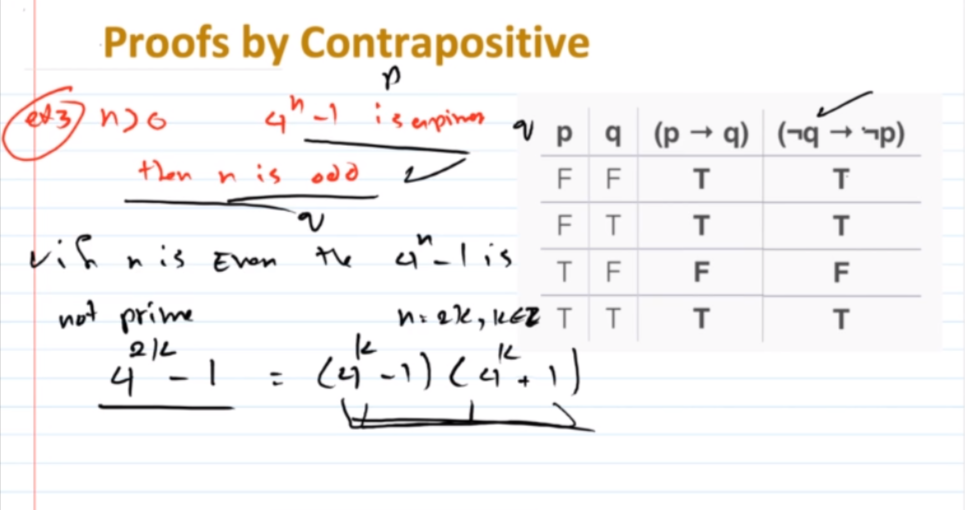 Proofs by Contrapositive
p
ex3 n>0 4^n - 1 is a prime q
then n is odd
q
if n is Even the 4^n - 1 is
not prime n = 2k, k∈Z
4^2k - 1 = (4^k - 1) (4^k + 1)
p q (p → q) (¬q → ¬p)
F F T T
F T T T
T F F F
T T T T